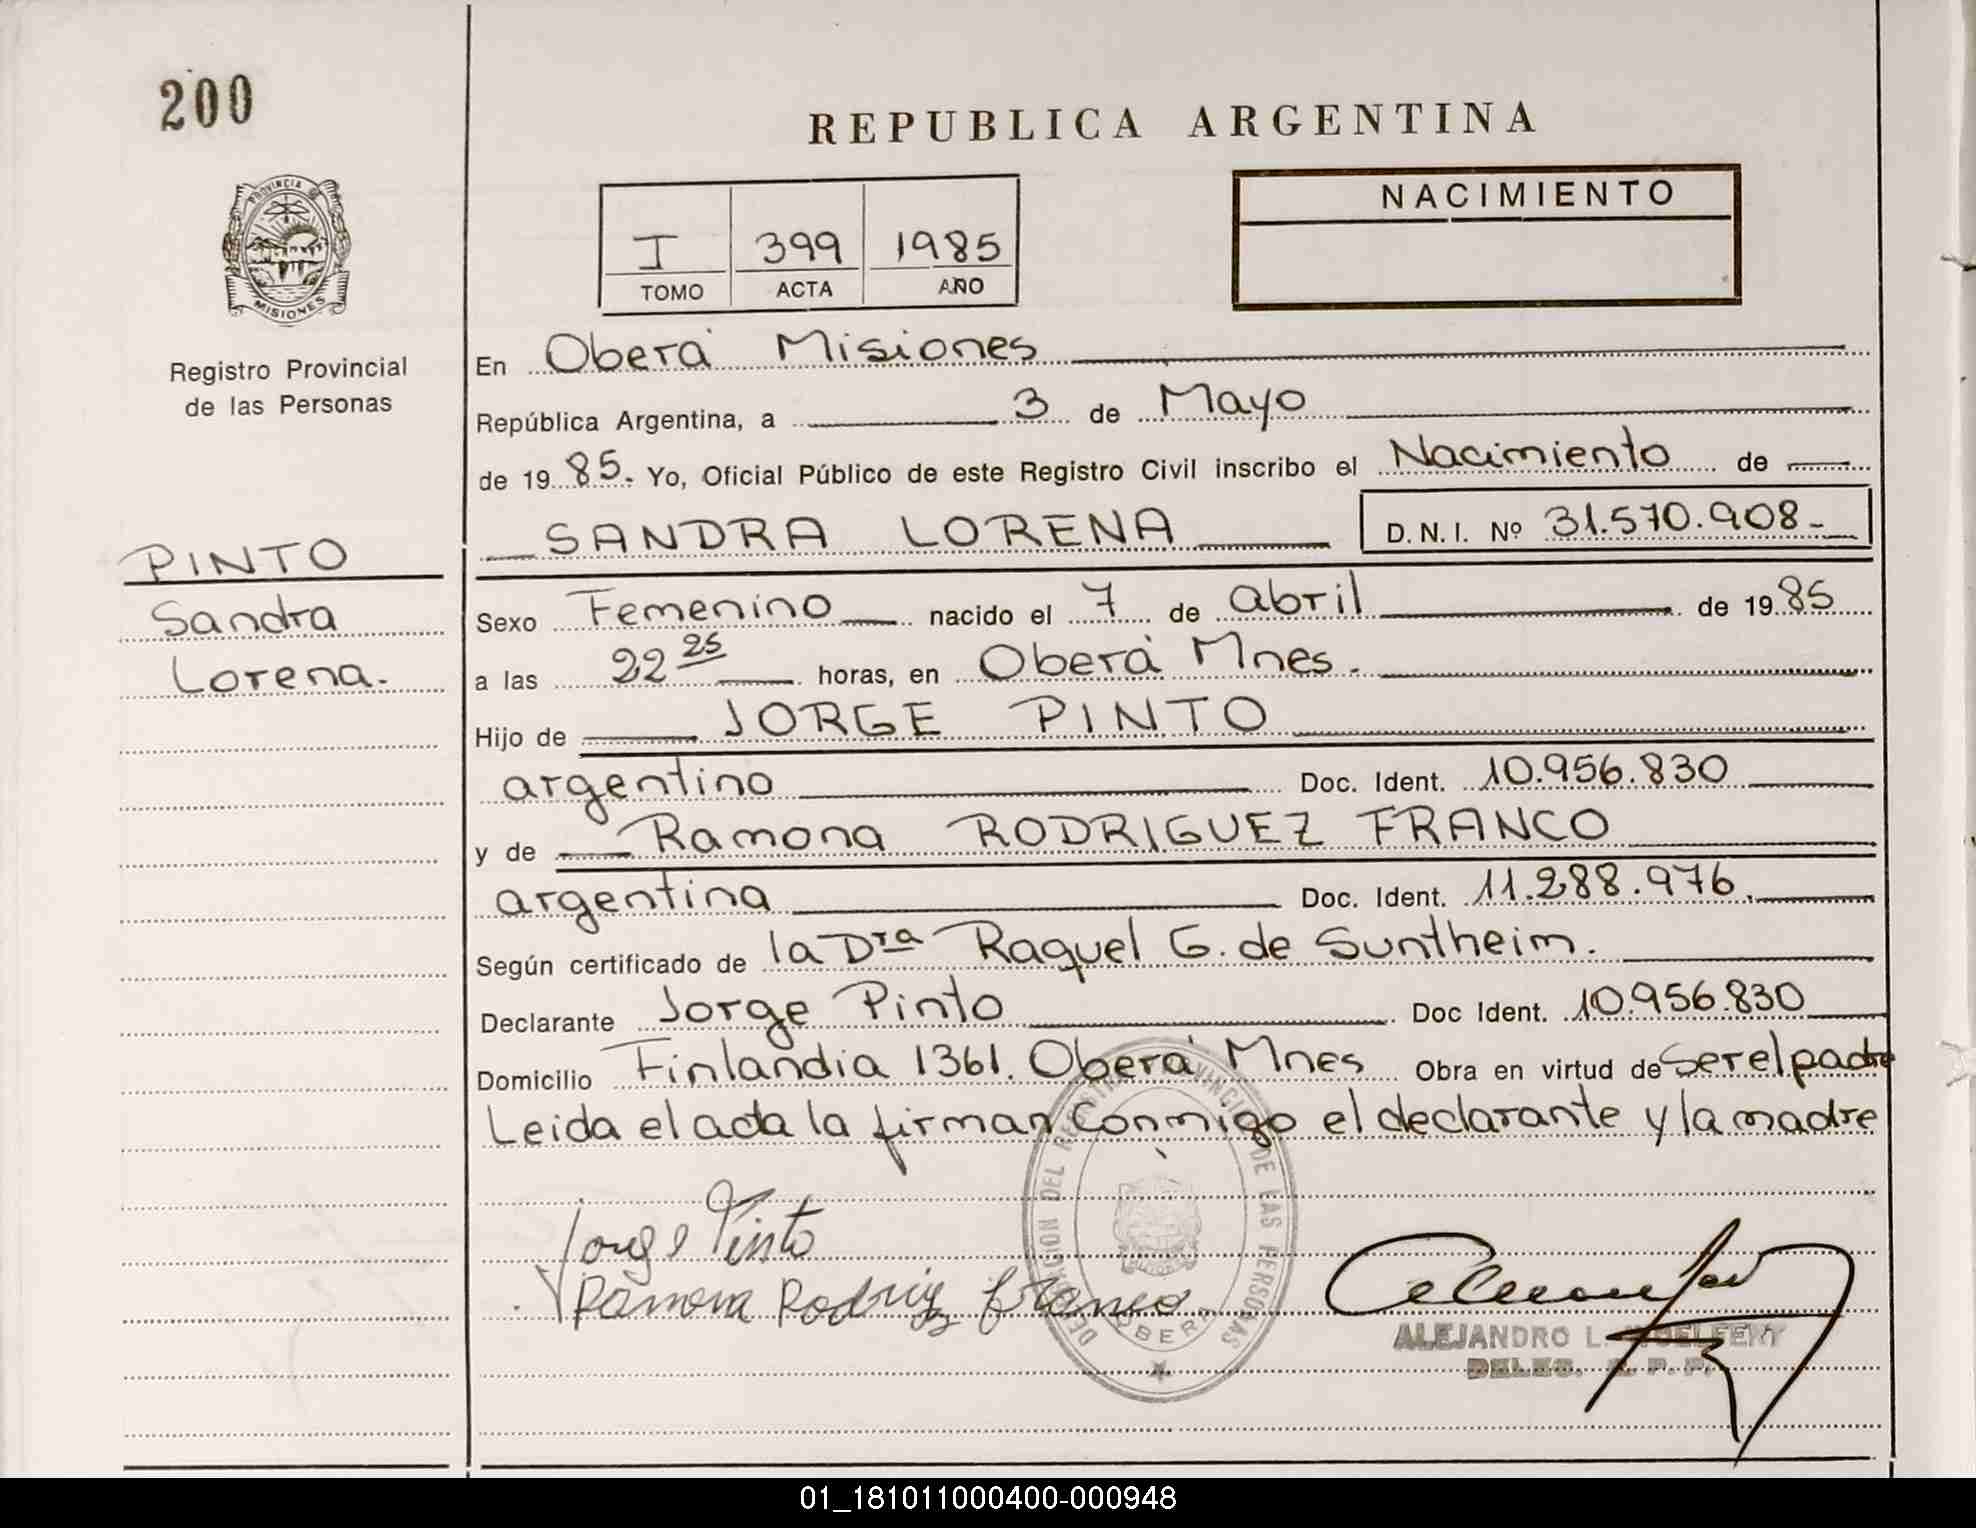 200
REPUBLICA ARGENTINA
PROVINCIA D
MISIONES
NACIMIENTO
I 399 1985
TOMO ACTA AÑO
Registro Provincial
de las Personas
En Oberá Misiones
República Argentina, a 3 de Mayo
de 19 85. Yo, Oficial Público de este Registro Civil inscribo el Nacimiento de
SANDRA LORENA D.N.I. Nº 31.570.908-
PINTO
Sandra
Lorena.
Sexo Femenino nacido el 7 de abril de 19 85
a las 22 25 horas, en Oberá Mnes.
Hijo de JORGE PINTO
argentino Doc. Ident. 10.956.830
y de Ramona RODRIGUEZ FRANCO
argentina Doc. Ident. 11.288.976.
Según certificado de la Dra Raquel G. de Suntheim.
Declarante Jorge Pinto Doc Ident. 10.956.830
Domicilio Finlandia 1361. Oberá Mnes Obra en virtud de ser el padre
Leida el acta la firman conmigo el declarante y la madre
Jorge Pinto
Ramona Rodriguez Franco
DEL REGISTRO PROVINCIAL DE LAS PERSONAS
OBERA
ALEJANDRO L.
DELEG. R. P. P.
01_181011000400-000948